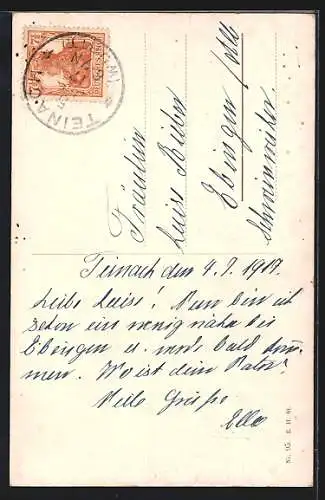 TEINACH
Fräulein
Luise Rieber
Ebingen
Teinach den 4. 7. 1917.
Liebe Luise! Nun bin ich
schon ein wenig näher bei
Ebingen u. werde bald kom-
men. Wo ist dein Vater?
Viele Grüße
Ella